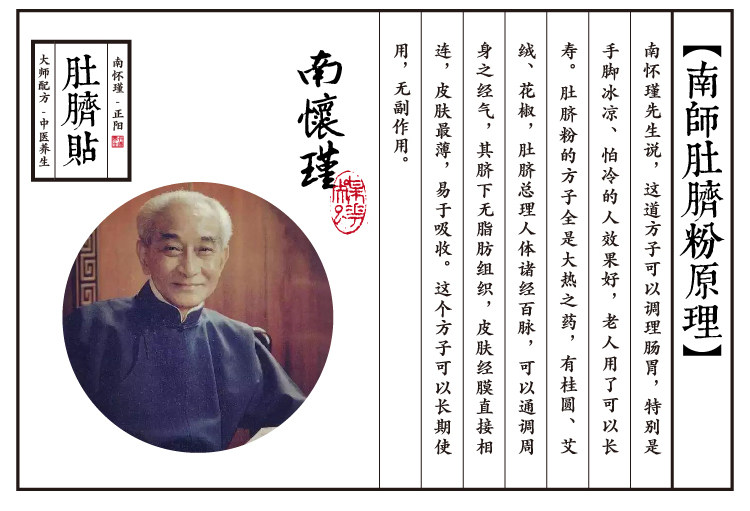 【南師肚臍粉原理】
南怀瑾先生说，这道方子可以调理肠胃，特别是
手脚冰凉、怕冷的人效果好，老人用了可以长
寿。肚脐粉的方子全是大热之药，有桂圆、艾
绒、花椒，肚脐总理人体诸经百脉，可以通调周
身之经气，其脐下无脂肪组织，皮肤经膜直接相
连，皮肤最薄，易于吸收。这个方子可以长期使
用，无副作用。
南懷瑾
南怀瑾-正阳
肚臍貼
大师配方-中医养生